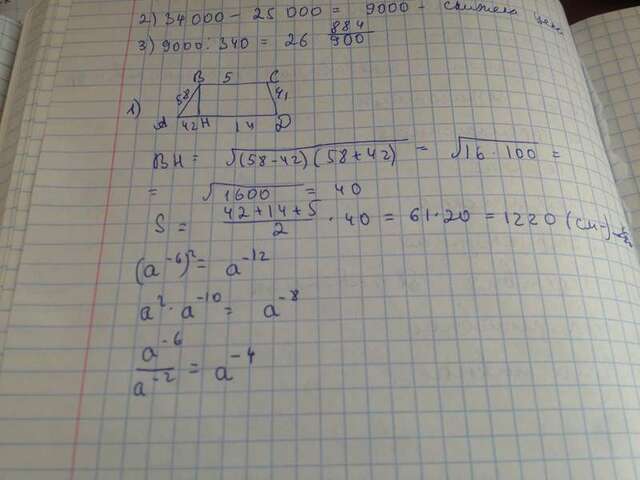 2) 34 000 - 25 000 = 9000 - снижена цена
3) 9000 : 340 = 26 884/900
1)
B 5 C
58 41
A 42 H 14 D
BH = √(58-42)(58+42) = √16 · 100 =
= √1600 = 40
S = (42+14+5)/2 · 40 = 61·20 = 1220 (см
(a⁻⁶)² = a⁻¹²
a² · a⁻¹⁰ = a⁻⁸
a⁻⁶/a⁻² = a⁻⁴